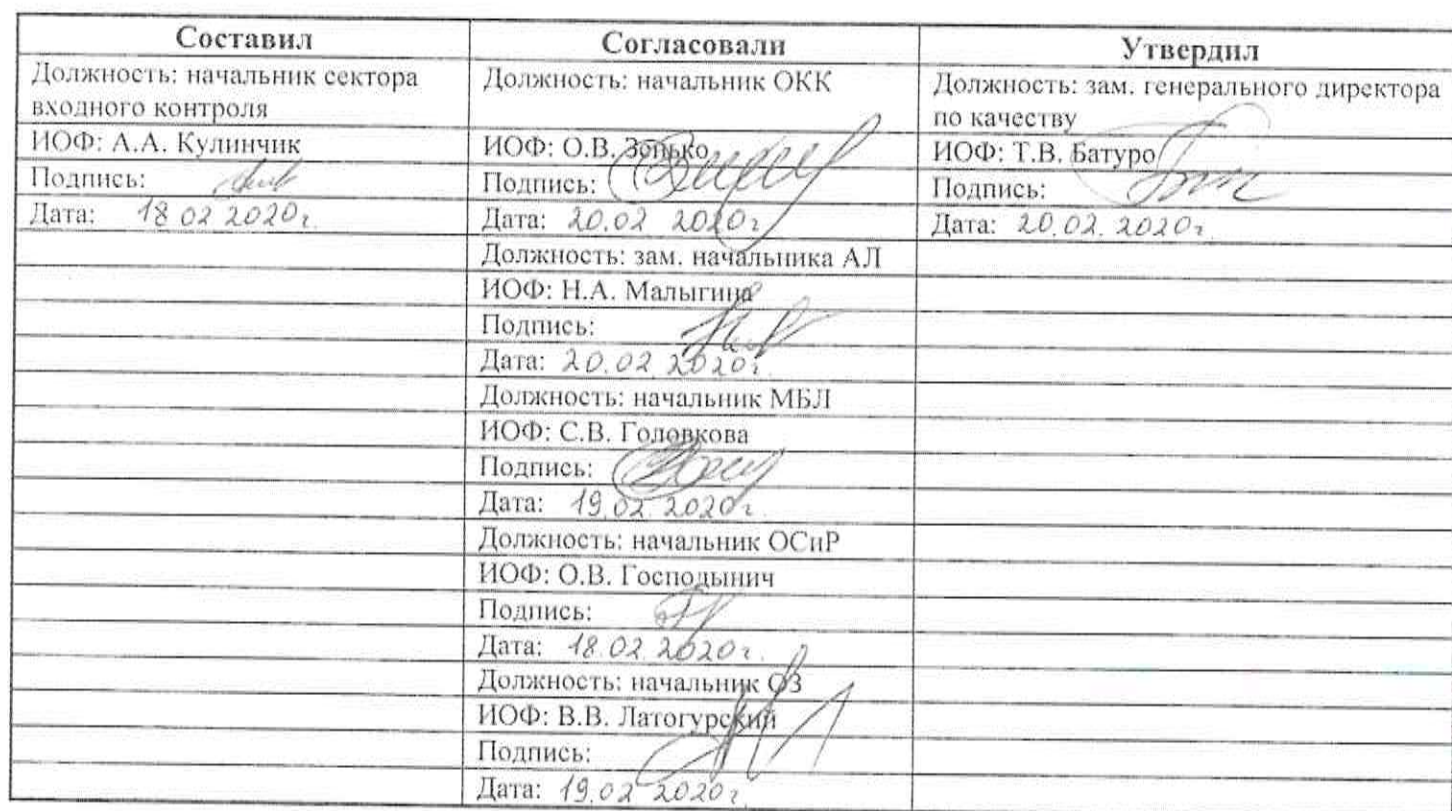 Составил
Согласовали
Утвердил
Должность: начальник сектора
входного контроля
Должность: начальник ОКК
Должность: зам. генерального директора
по качеству
ИОФ: А.А. Кулинчик
ИОФ: О.В. Зонько
ИОФ: Т.В. Батуро
Подпись:
Подпись:
Подпись:
Дата: 18.02.2020г.
Дата: 20.02.2020г.
Дата: 20.02.2020г.
Должность: зам. начальника АЛ
ИОФ: Н.А. Малыгина
Подпись:
Дата: 20.02.2020г.
Должность: начальник МБЛ
ИОФ: С.В. Головкова
Подпись:
Дата: 19.02.2020г.
Должность: начальник ОСиР
ИОФ: О.В. Господынич
Подпись:
Дата: 18.02.2020г.
Должность: начальник ОЗ
ИОФ: В.В. Латогурский
Подпись:
Дата: 19.02.2020г.